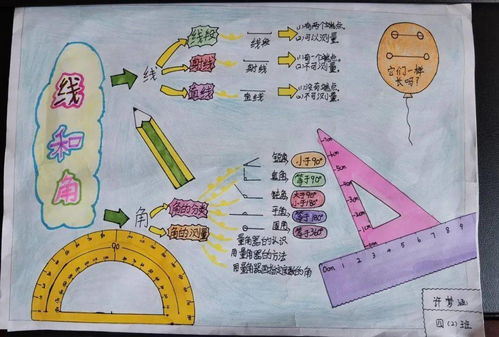 线和角
线
线段
线段
(1)有两个端点。
(2)可以测量。
射线
射线
(1)有一个端点。
(2)不可测量。
直线
直线
(1)没有端点。
(2)不可测量。
它们一样
长吗?
角
角的分类
锐角
小于90°
直角
等于90°
钝角
大于90°
小于180°
平角
等于180°
周角
等于360°
角的测量
量角器的认识
用量角器的方法
0cm 1 2 3 4 5 6 7 8 9
四(2)班